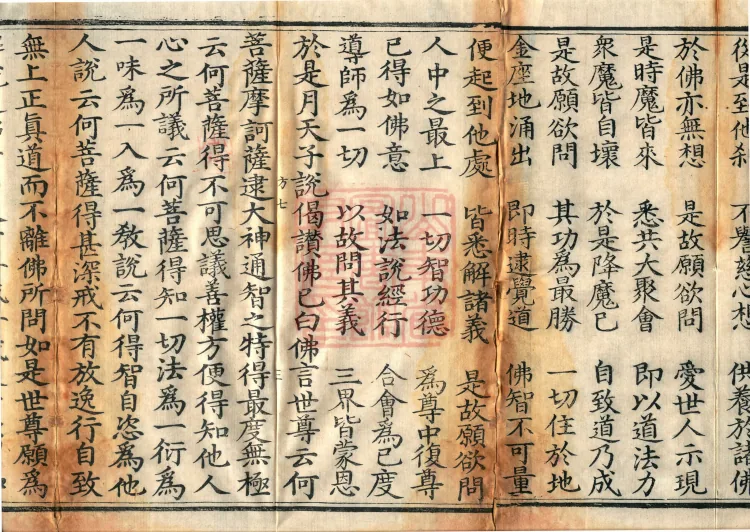 後是到他殺 不興慈心想 供養於諸佛
於佛亦無想 是故願欲問 愛世人示現
是時魔皆來 悉共大聚會 即以道法力
眾魔皆自壞 於是降魔已 自致道乃成
是故願欲問 其功為最勝 一切住於地
金座地涌出 即時逮覺道 佛智不可量
便起到他處 皆悉解諸義 是故願欲問
人中之最上 一切智功德 為尊中復尊
已得如佛意 如法說經行 合會為已度
導師為一切 以故問其義 三界皆蒙恩
於是月天子說偈讚佛已白佛言世尊云何
方七 三
菩薩摩訶薩逮大神通智之特得最度無極
云何菩薩得不可思議善權方便得知他人
心之所議云何菩薩得知一切法為一衍為
一味為一入為一教說云何得智自恣為他
人說云何菩薩得甚深戒不有放逸行自致
無上正真道而不離佛所問如是世尊願為